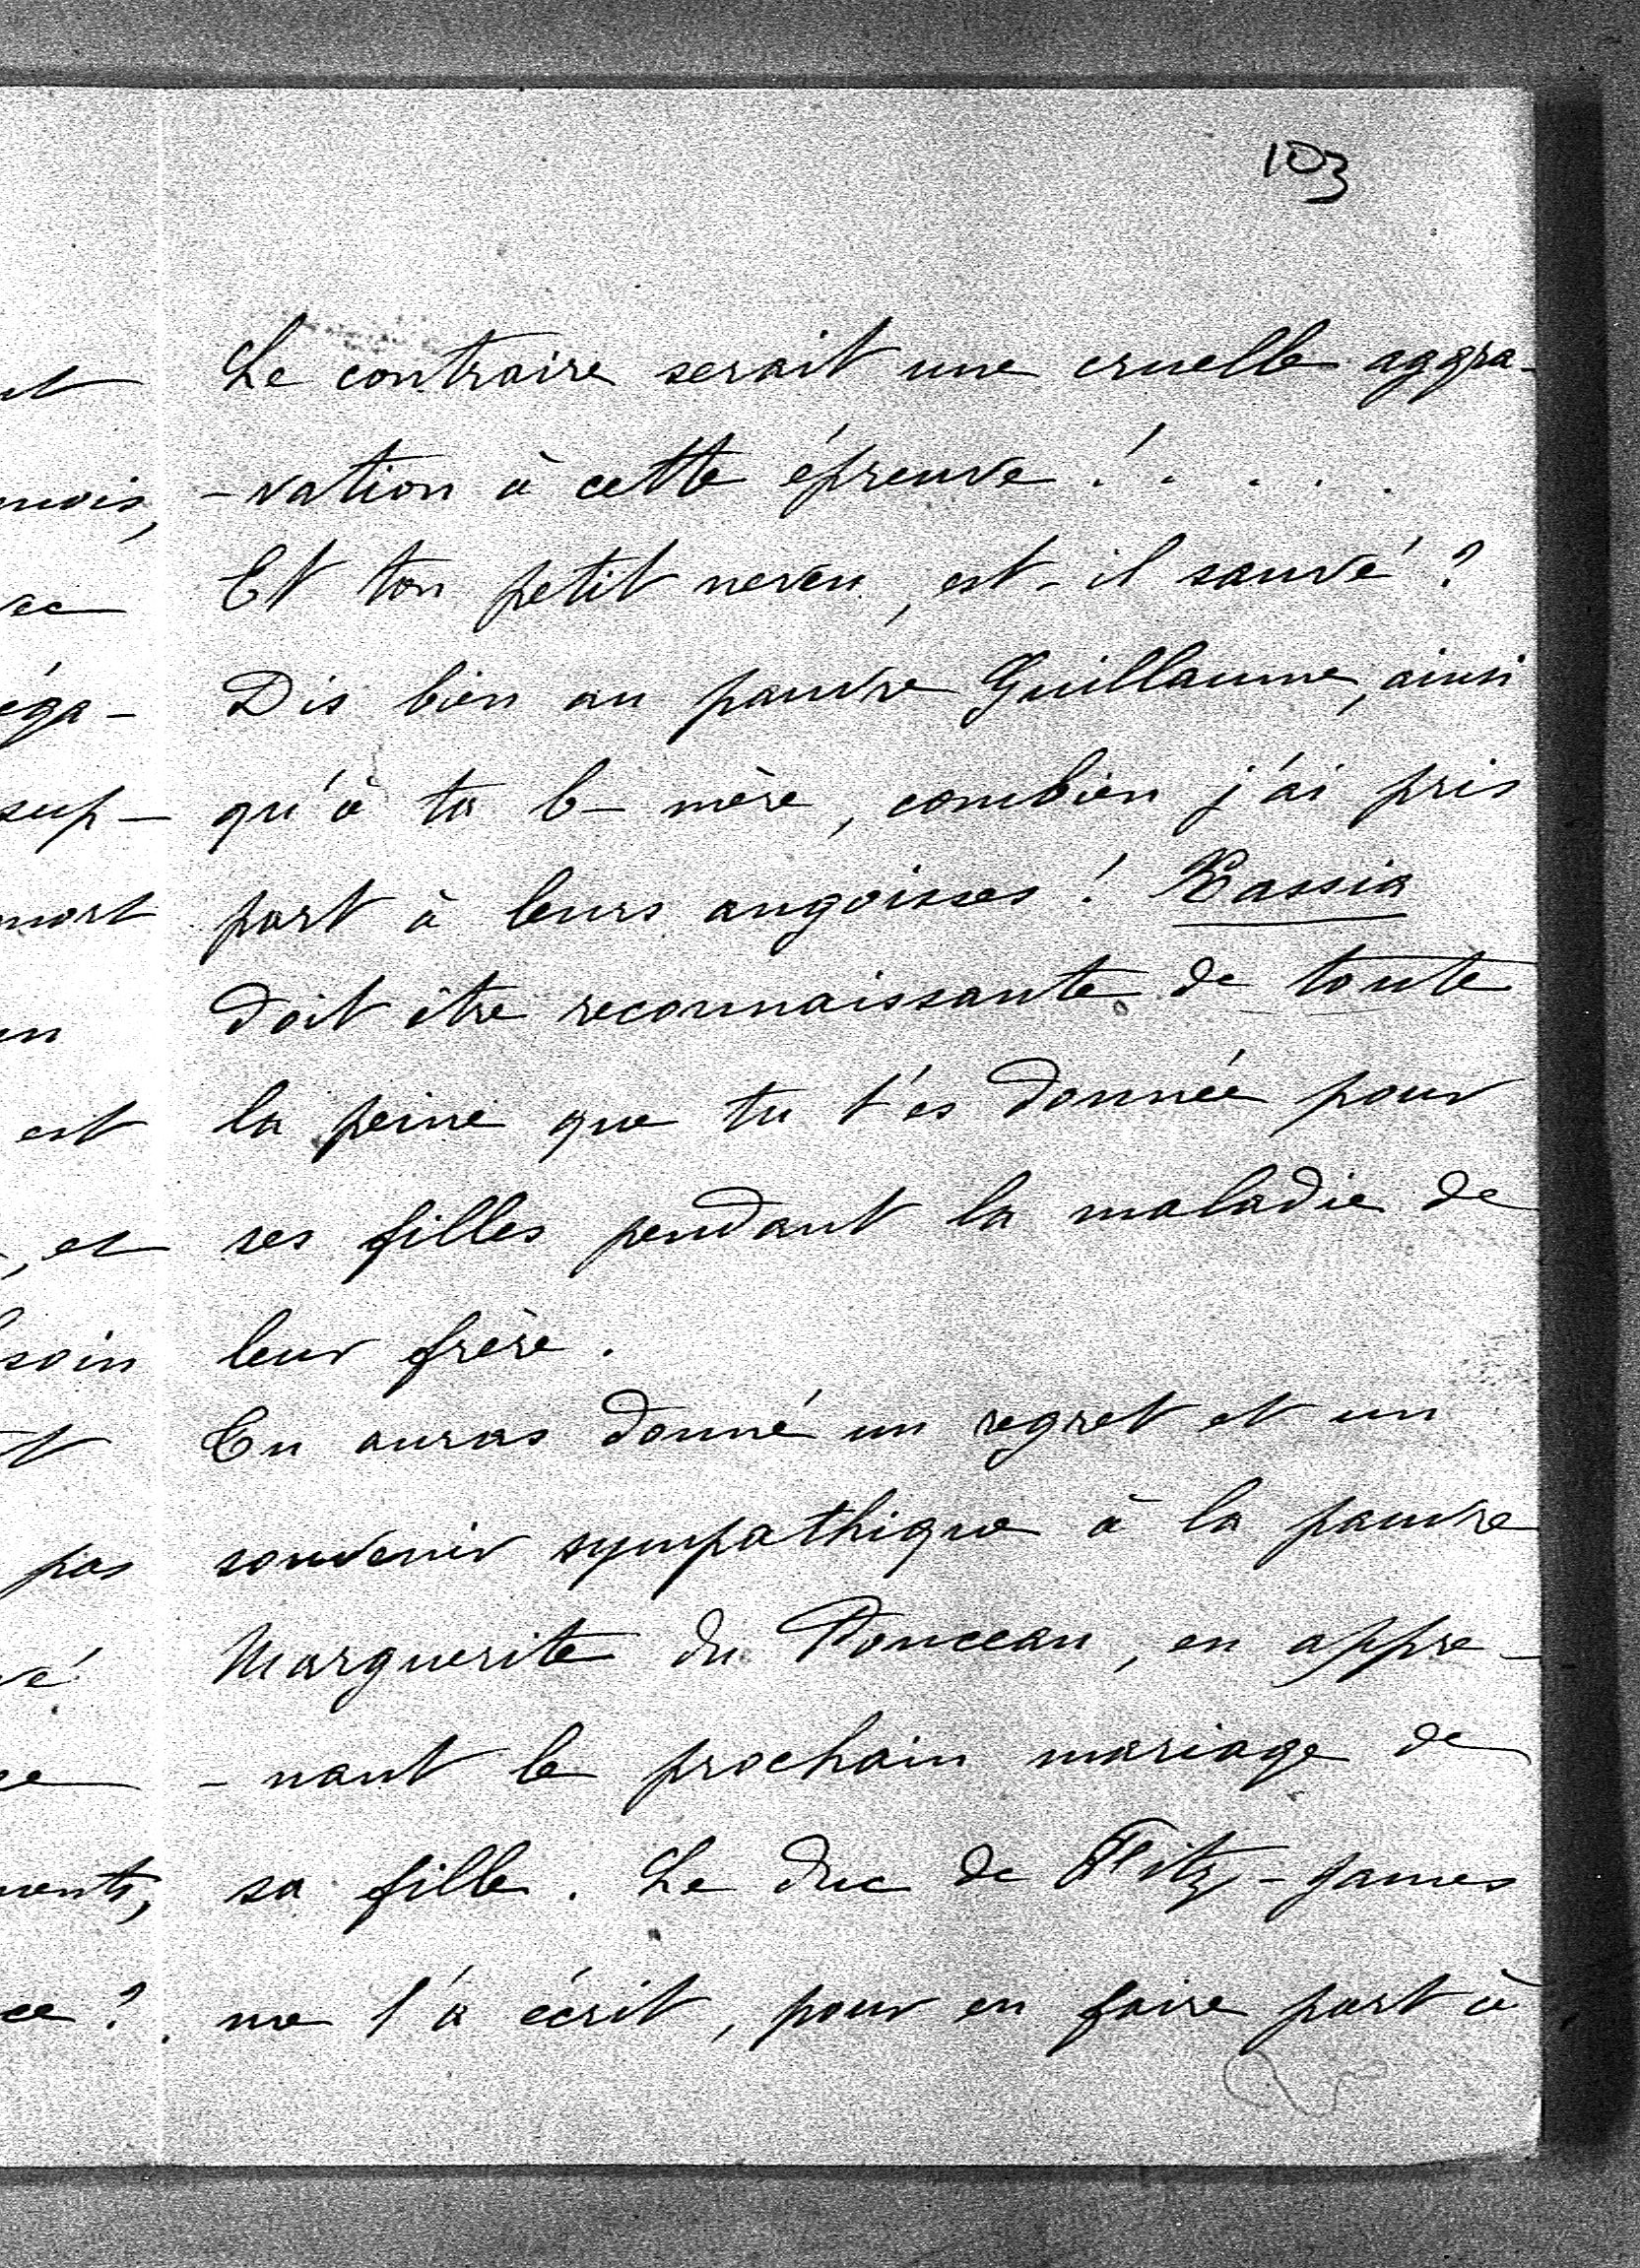 103
Le contraire serait une cruelle aggra-
-vation à cette épreuve ! . . . .
Et ton petit neveu, est-il sauvé ?
Dis bien au pauvre Guillaume, ainsi
qu'à ta b- mère, combien j'ai pris
part à leurs angoisses ! Kassia
doit être reconnaissante de toute
la peine que tu t'es donnée pour
ses filles pendant la maladie de
leur frère.
Tu auras donné un regret et un
souvenir sympathique à la pauvre
Marguerite du Ponceau, en appre-
-nant le prochain mariage de
sa fille. Le duc de Fitz-James
me l'a écrit, pour en faire part à
et
mois,
vec
éga-
sup-
mort
un
est
, et
soin
t
pas
vé
ce
ments,
ce ?